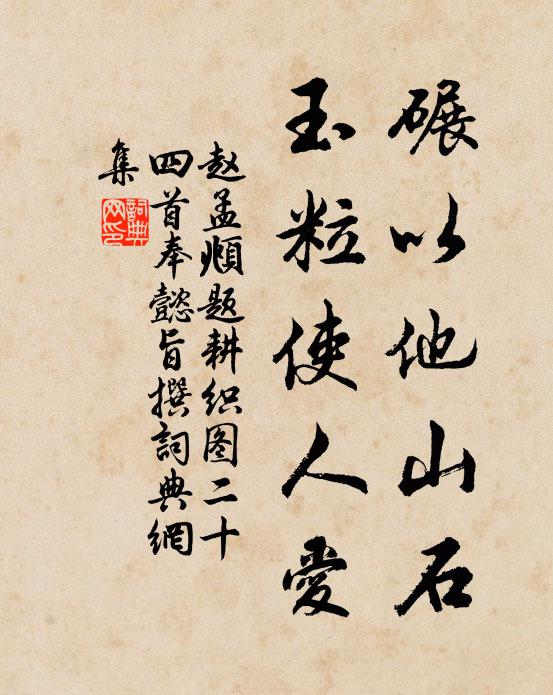 碾以他山石
玉粒使人愛
赵孟頫题耕织图二十
四首奉懿旨撰詞典網
集
詞典
网印